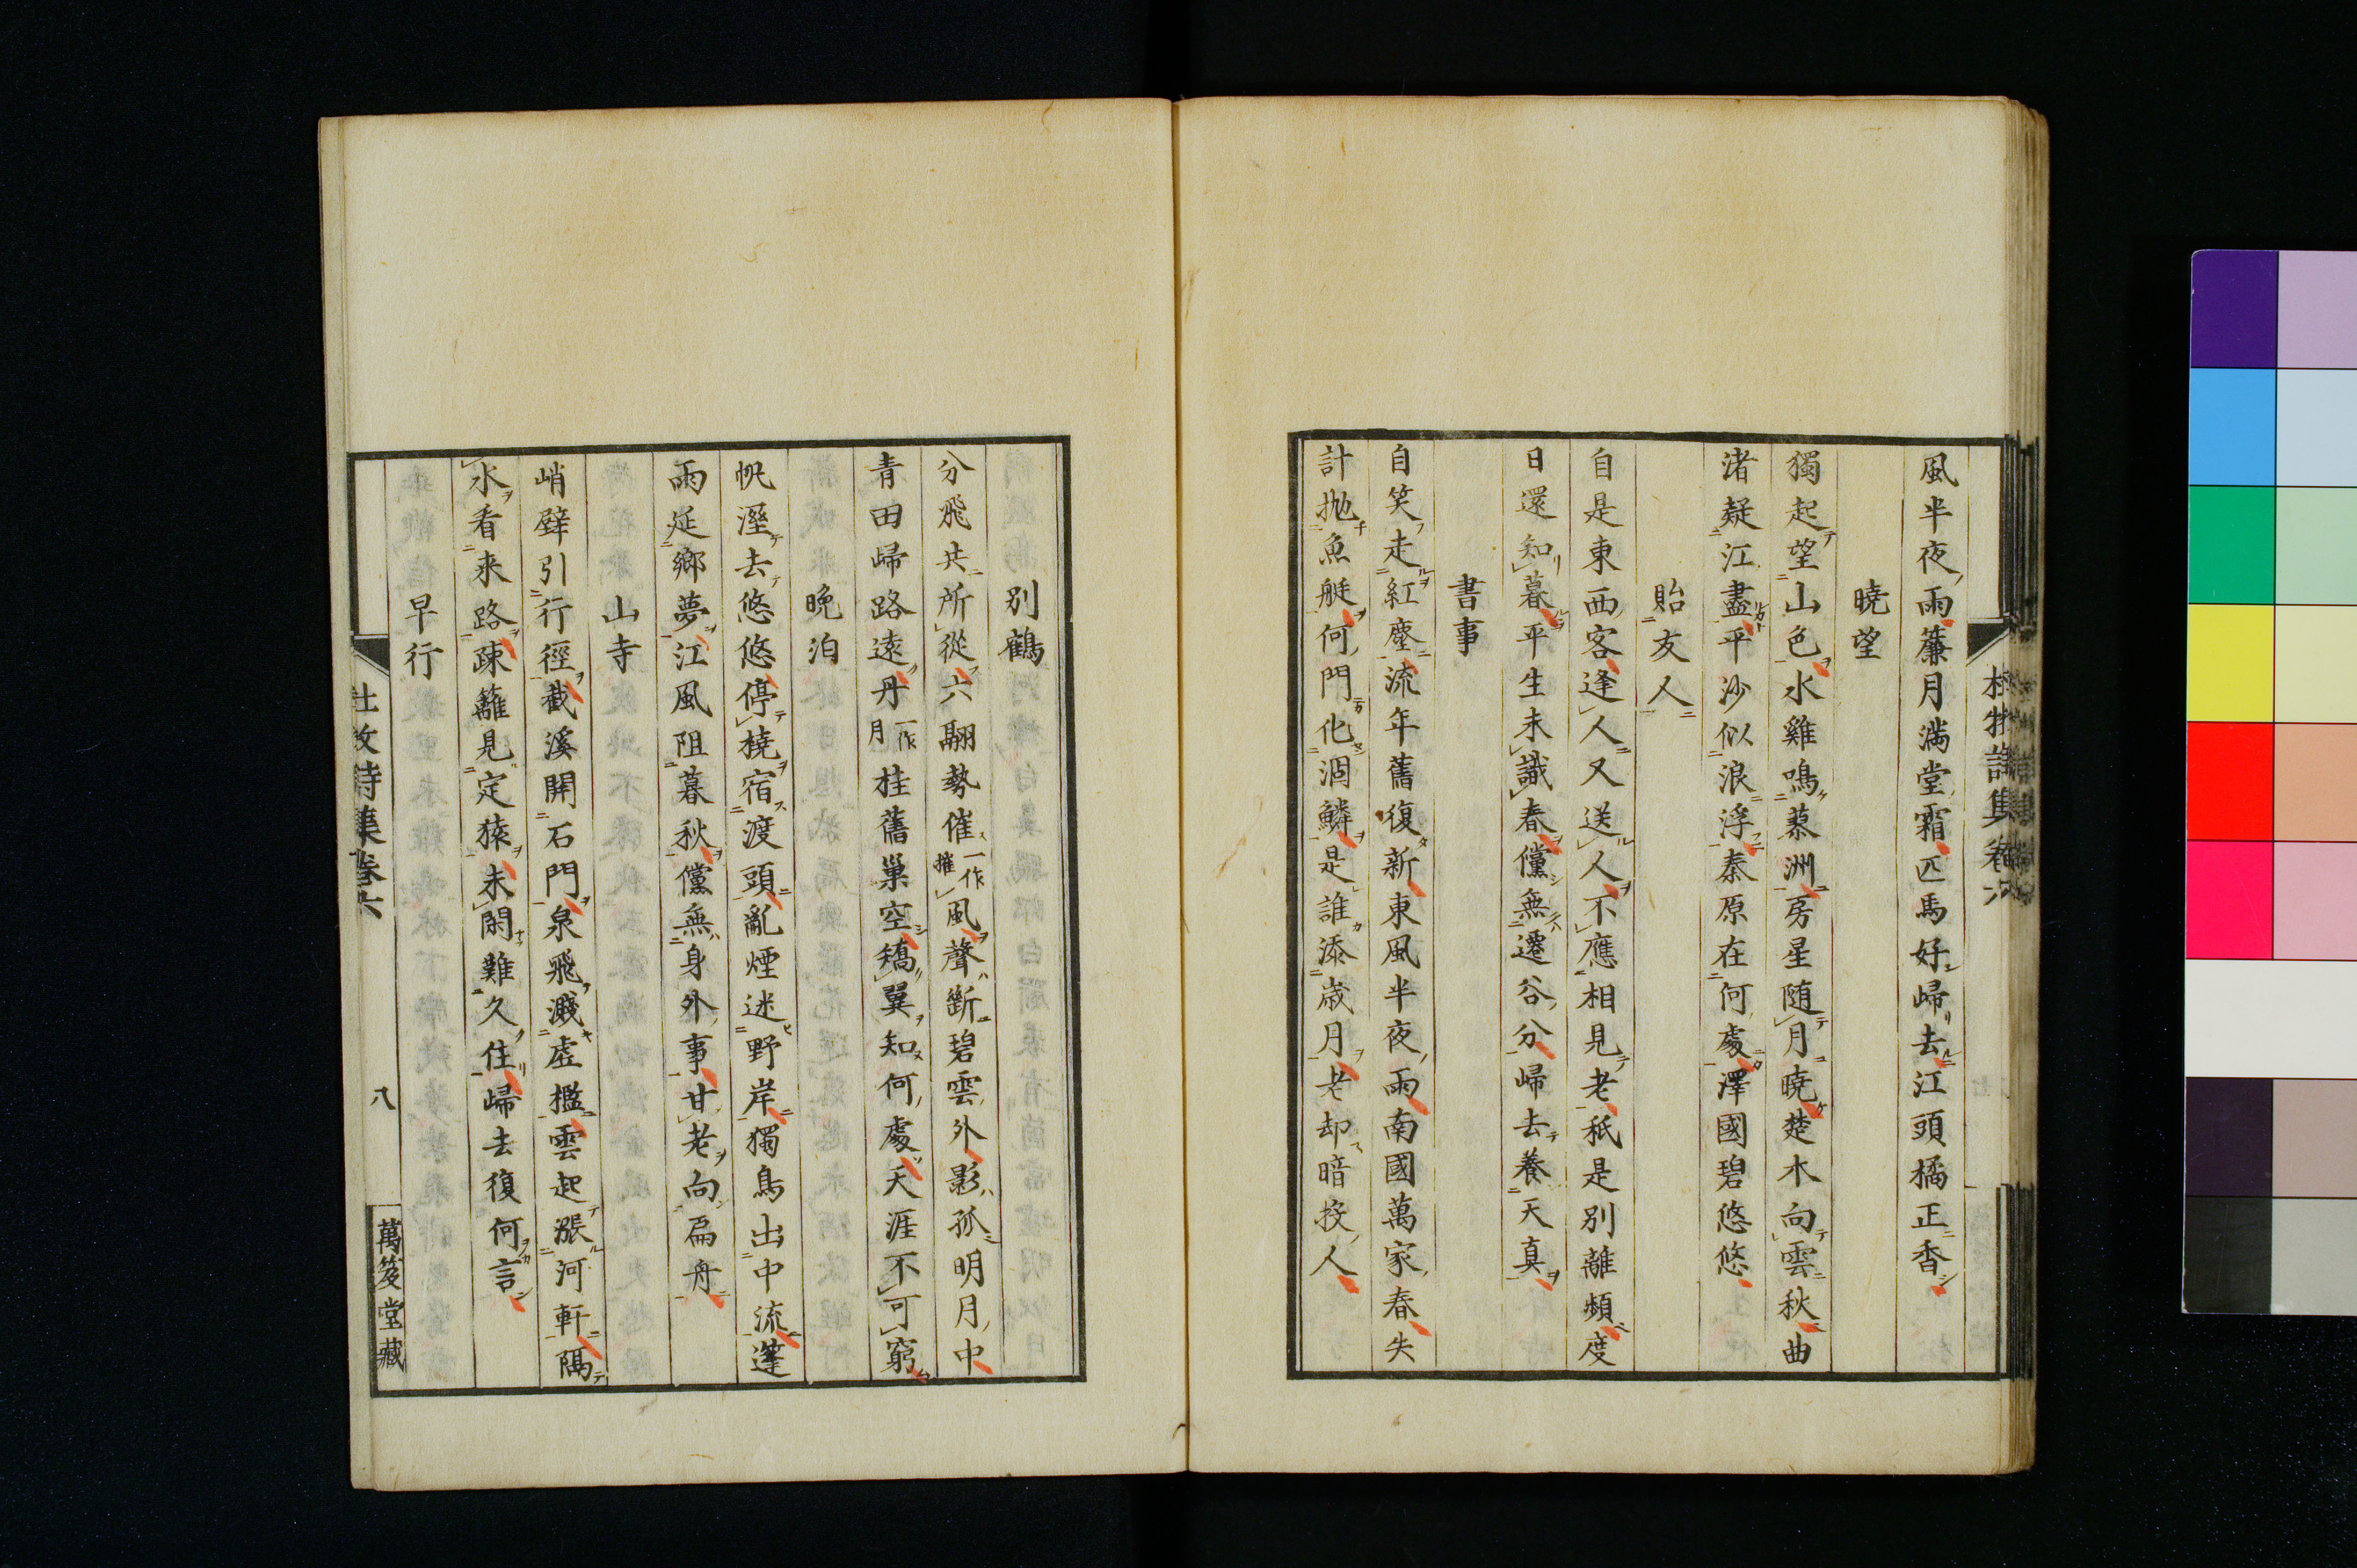 風半夜雨簾月滿堂霜匹馬好歸去江頭橘正香
曉望
獨起望山色水雞鳴蓼洲房星随月曉楚木向雲秋曲
渚疑江盡平沙似浪浮秦原在何處澤國碧悠悠
貽友人
自是東西客逢人又送人不應相見老秖是別離頻度
日還知暮平生未識春儻無遷谷分歸去養天真
書事
自笑走紅塵流年舊復新東風半夜雨南國萬家春失
計抛魚艇何門化涸鱗是誰添歳月老却暗投人
別鶴
分飛共所從六翮勢催一作摧風聲斷碧雲外影孤明月中
青田歸路遠丹一作月桂舊巢空矯翼知何處天涯不可窮
晩泊
帆溼去悠悠停橈宿渡頭亂煙迷野岸獨鳥出中流蓬
雨延鄉夢江風阻暮秋儻無身外事甘老向扁舟
山寺
峭壁引行徑截溪開石門泉飛濺虛檻雲起漲河軒隔
水看來路疎籬見定猿未閑難久住歸去復何言
早行
杜牧詩集卷六
八
萬笈堂藏